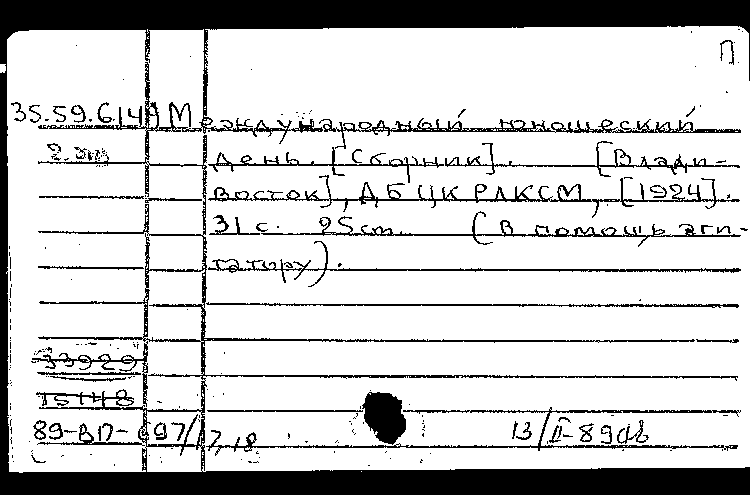 П
35.59.614 Международный юношеский
2.эк день. [Сборник]. [Влади-
восток], ДБ ЦК РЛКСМ, [1924].
31 с. 25см. (В помощь аги-
татиру).
33929
15148
89-ВП-697/17,18 13/II-89